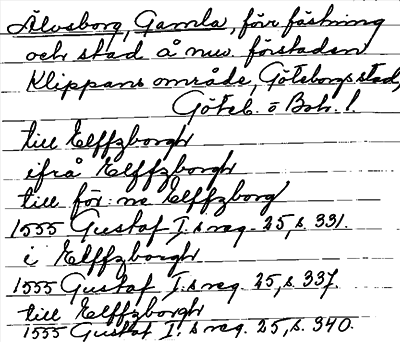 Älvsborg, Gamla, förr fästning
och stad å nuv. förstaden
Klippans område, Göteborgs stad,
Göteb. o Boh. l.
till Elffzborgh
ifrå Elffzborgh
till för:ne Elffzborg
1555 Gustaf I:s reg. 25, s. 331.
i Elffzborgh
1555 Gustaf I:s reg. 25, s. 337.
till Elffzborgh
1555 Gustaf I:s reg. 25, s. 340.